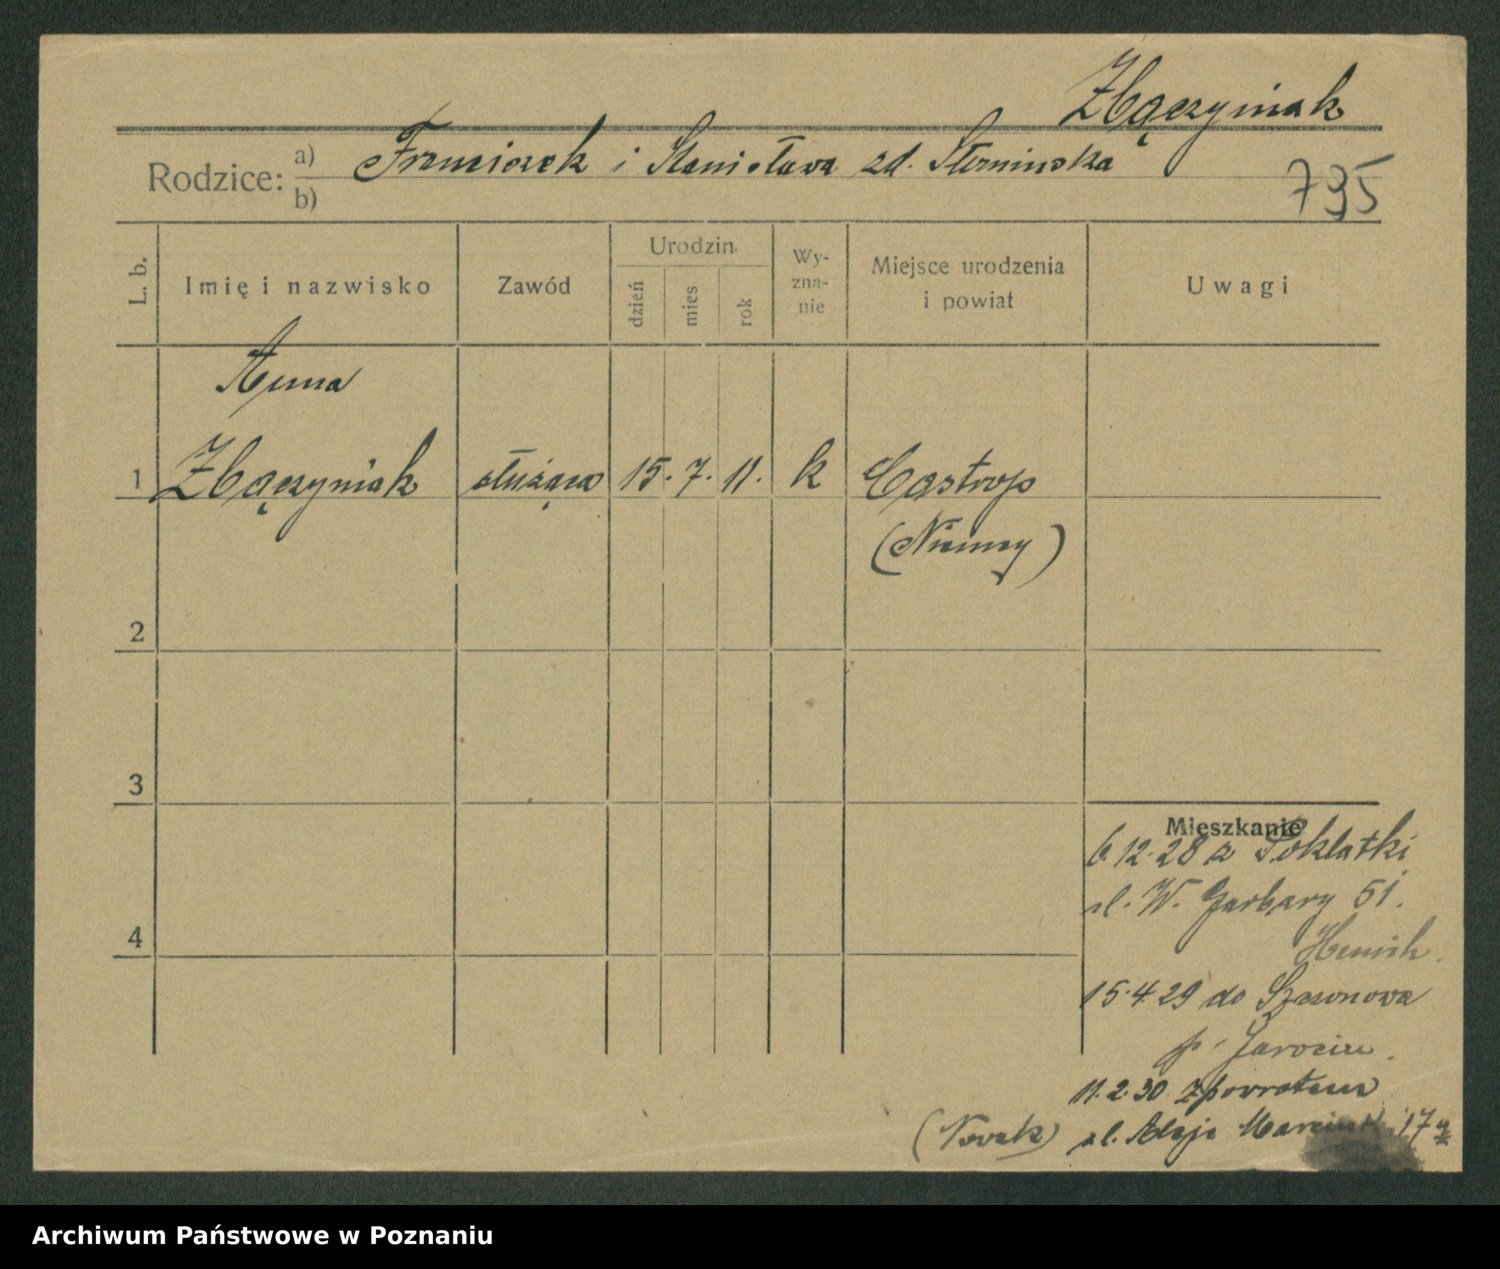 Zbączyniak
Rodzice: a) Franciszek i Stanisława zd. Słomińska
b)
795
L. b.
Imię i nazwisko
Zawód
Urodzin
dzień
mies
rok
Wy-
zna-
nie
Miejsce urodzenia
i powiat
Uwagi
Anna
1 Zbączyniak służąca 15. 7. 11. k Castrop
(Niemcy)
2
3
Mieszkanie
6.12.28 z Poklatki
ul. W. Garbary 51.
4
15.4.29 do
p. Jarocin.
11.2.30 z powrotem
(Novak) ul. Aleje Marcink. 17a
Archiwum Państwowe w Poznaniu